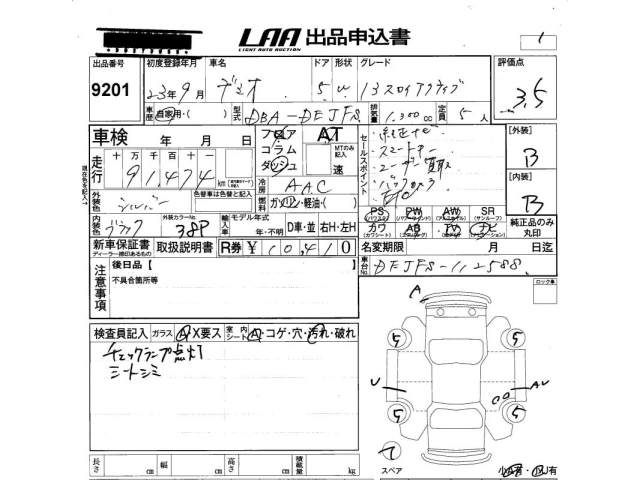 LAA 出品申込書
LIGHT AUTO AUCTION
1
出品番号 初度登録年月 車名 ドア 形状 グレード 評価点
9201 23年9月 デミオ 5 V 13スカイアクティブ 3.5
車歴 自家用・( ) 型式 DBA-DEJFS 排気量 1,300cc 定員 5人
車検 年 月 日
フロア コラム ダッシュ
AT
MTのみ記入
速
セールスポイント
純正ナビ
スマートキー
ユーザー買取
バックカメラ
[外装]
B
[内装]
B
走行 十万千百十
91,474 km
現在色を記入
外装色 シルバー
色替車は色替と記入
冷房 AAC
燃料 ガソリン・軽油・( )
内装色 ブラック
外装カラーNo.
38P
輸入車 モデル年式
年・不明
D車・並 右H・左H
PS PW AW SR
(パワステ) (パワーウインドウ) (アルミホイル) (サンルーフ)
カワ AB TV ナビ
(カワシート) (エアバッグ) (テレビ) (ナビゲーション)
純正品のみ丸印
新車保証書 取扱説明書 R券 ¥10,410
ディーラー捺印あるもの
名変期限 月 日迄
車台No. DEJFS-112588
注意事項
後日品【 】
不具合箇所等
ロック車
検査員記入 ガラス A X要ス 室内シート A・コゲ・穴・汚れ・破れ
チェックランプ点灯
シートシミ
A
5 5
U AU
5 5
スペア
長さ cm 幅 cm 高さ cm 積載量 kg